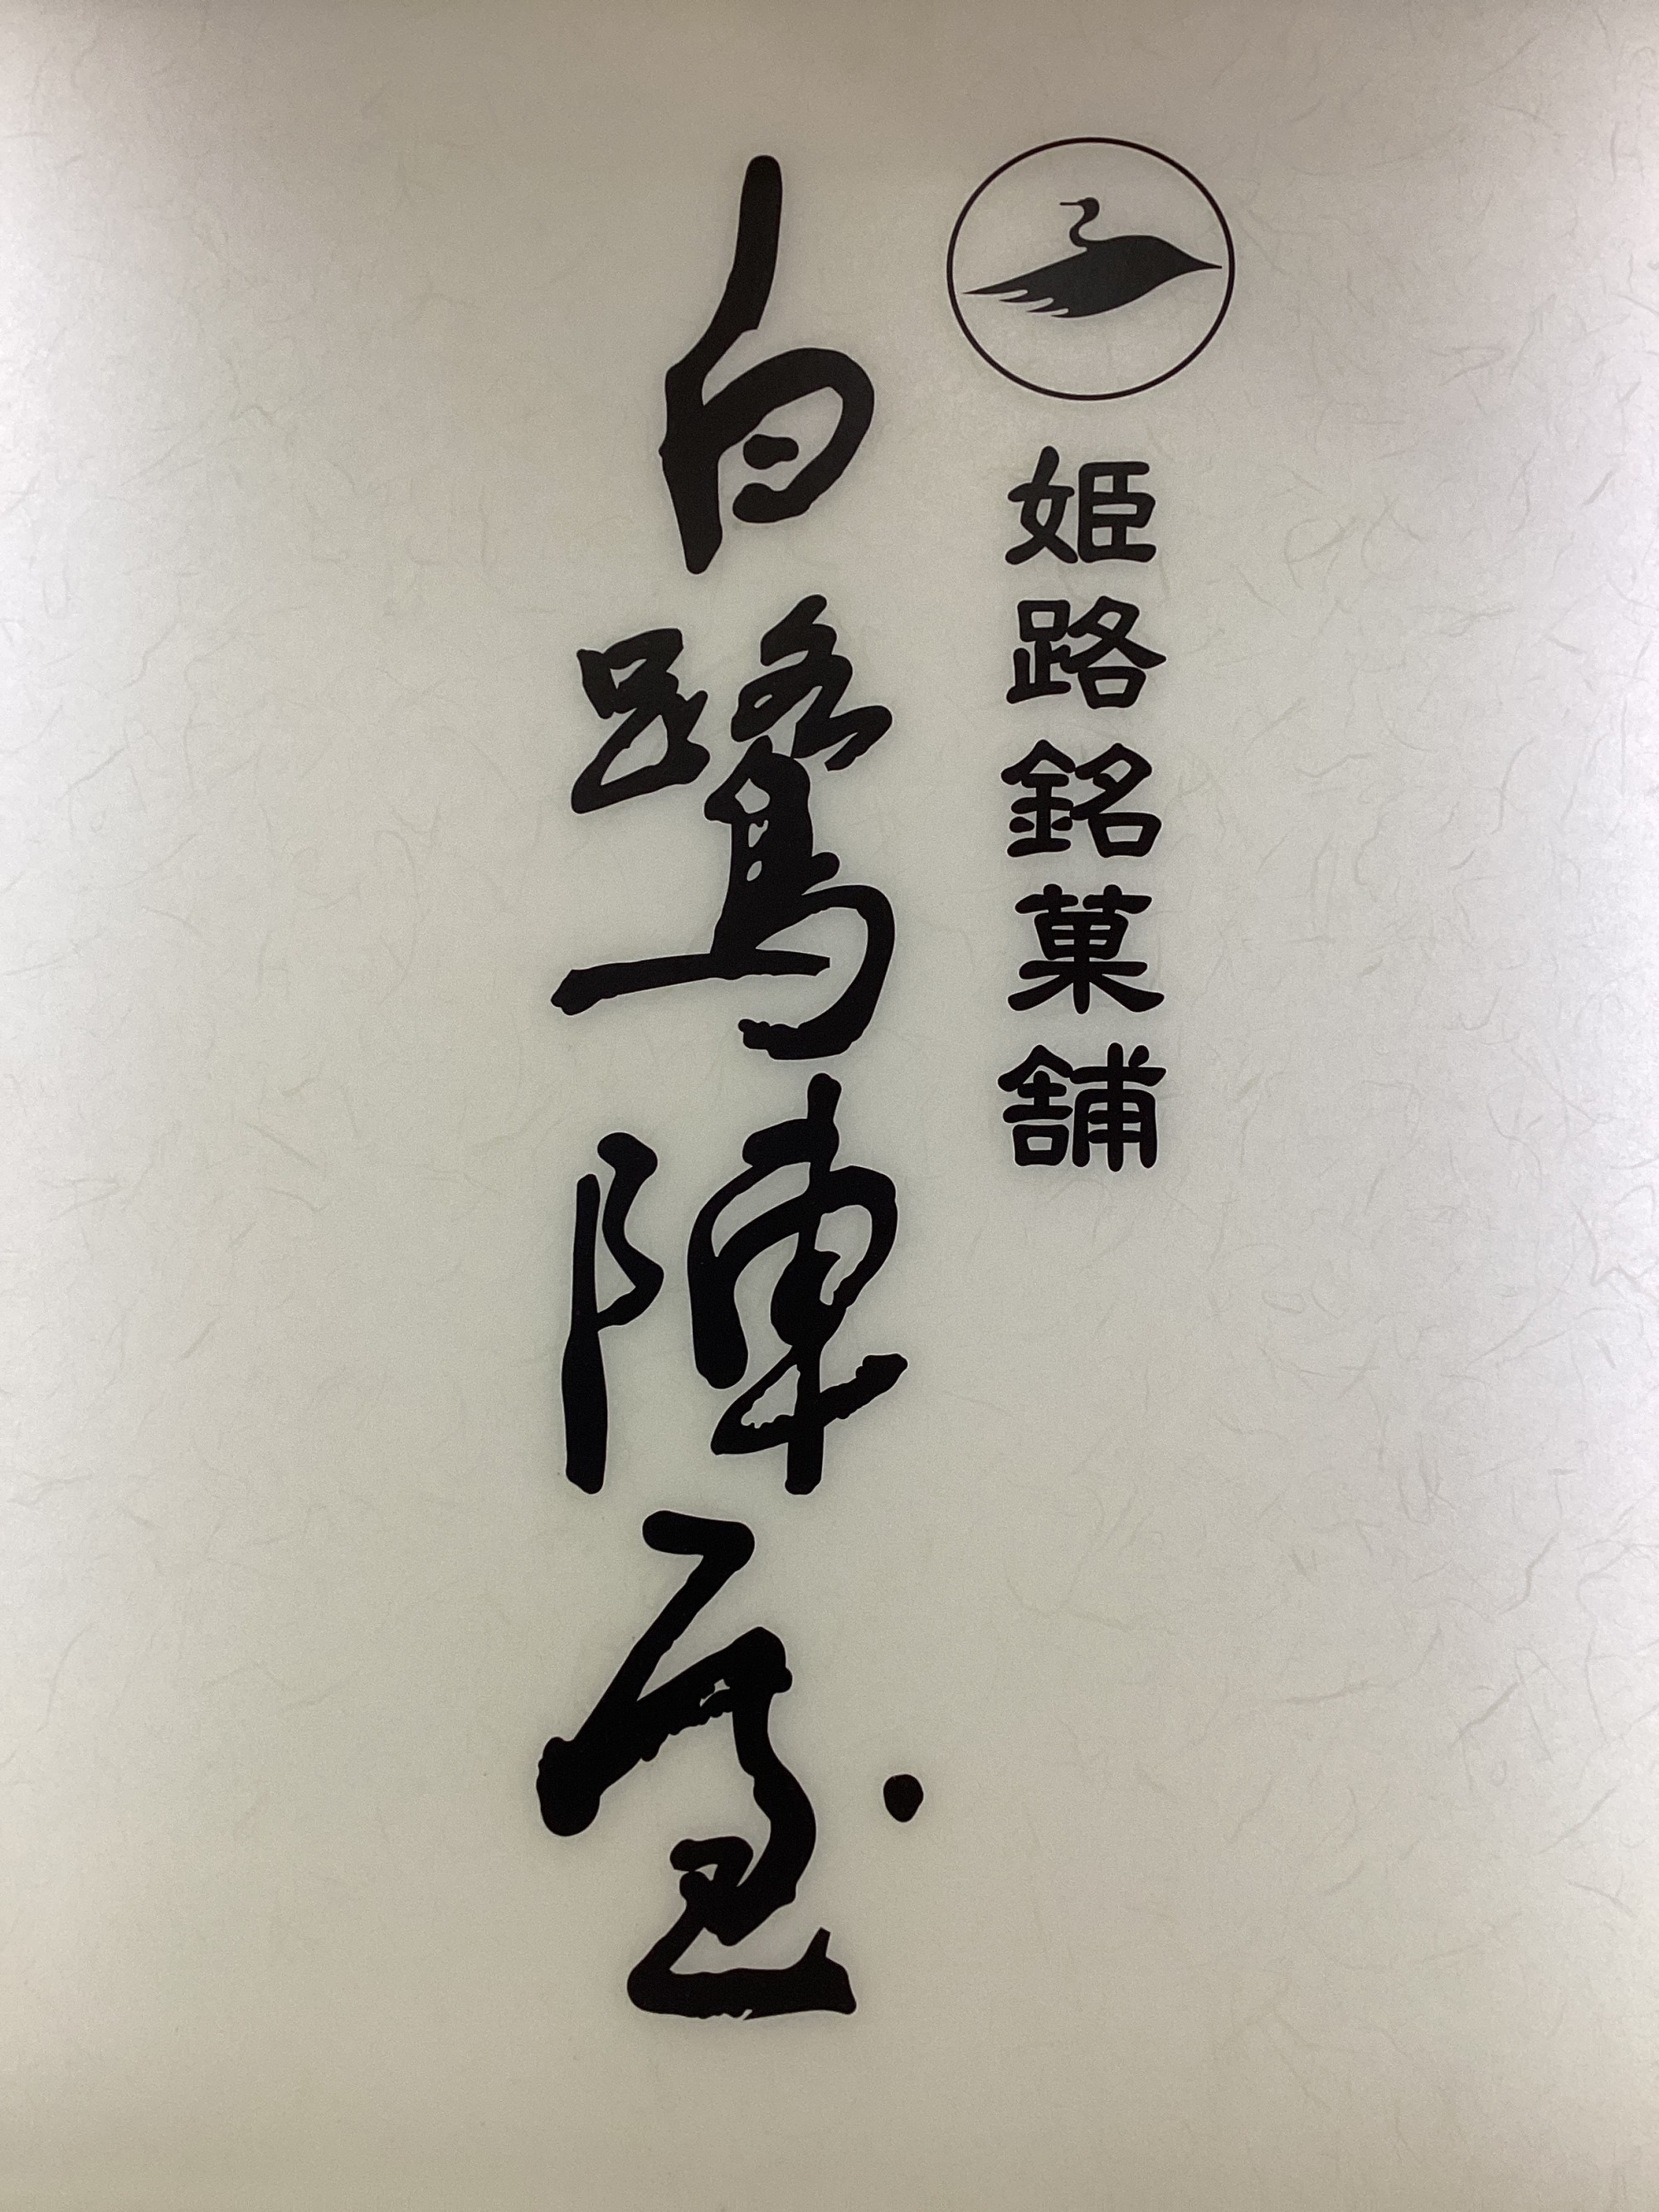 姫路銘菓舗
白鷺陣屋